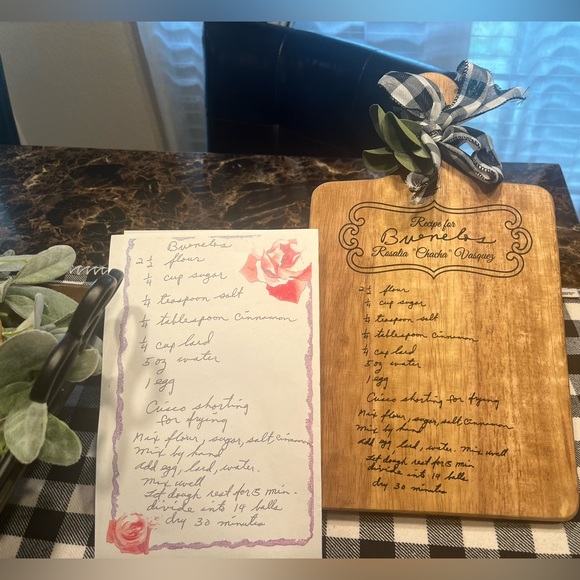 Buonelos
2 1/2 flour
1/4 cup sugar
1/4 teaspoon salt
1/4 tablespoon cinnamon
1/4 cup lard
5 oz water
1 egg
Crisco shorting
for frying
Mix flour, sugar, salt cinnamon
Mix by hand
add egg, lard, water.
Mix well
Let dough rest for 5 min.
divide into 14 balls
dry 30 minutes
Recipe for
Buonelos
Rosalia "Chacha" Vasquez
2 1/2 flour
1/4 cup sugar
1/4 teaspoon salt
1/4 tablespoon cinnamon
1/4 cup lard
5 oz water
1 egg
Crisco shorting for frying
Mix flour, sugar, salt, cinnamon
Mix by hand
add egg, lard, water. Mix well
Let dough rest for 5 min
divide into 14 balls
dry 30 minutes